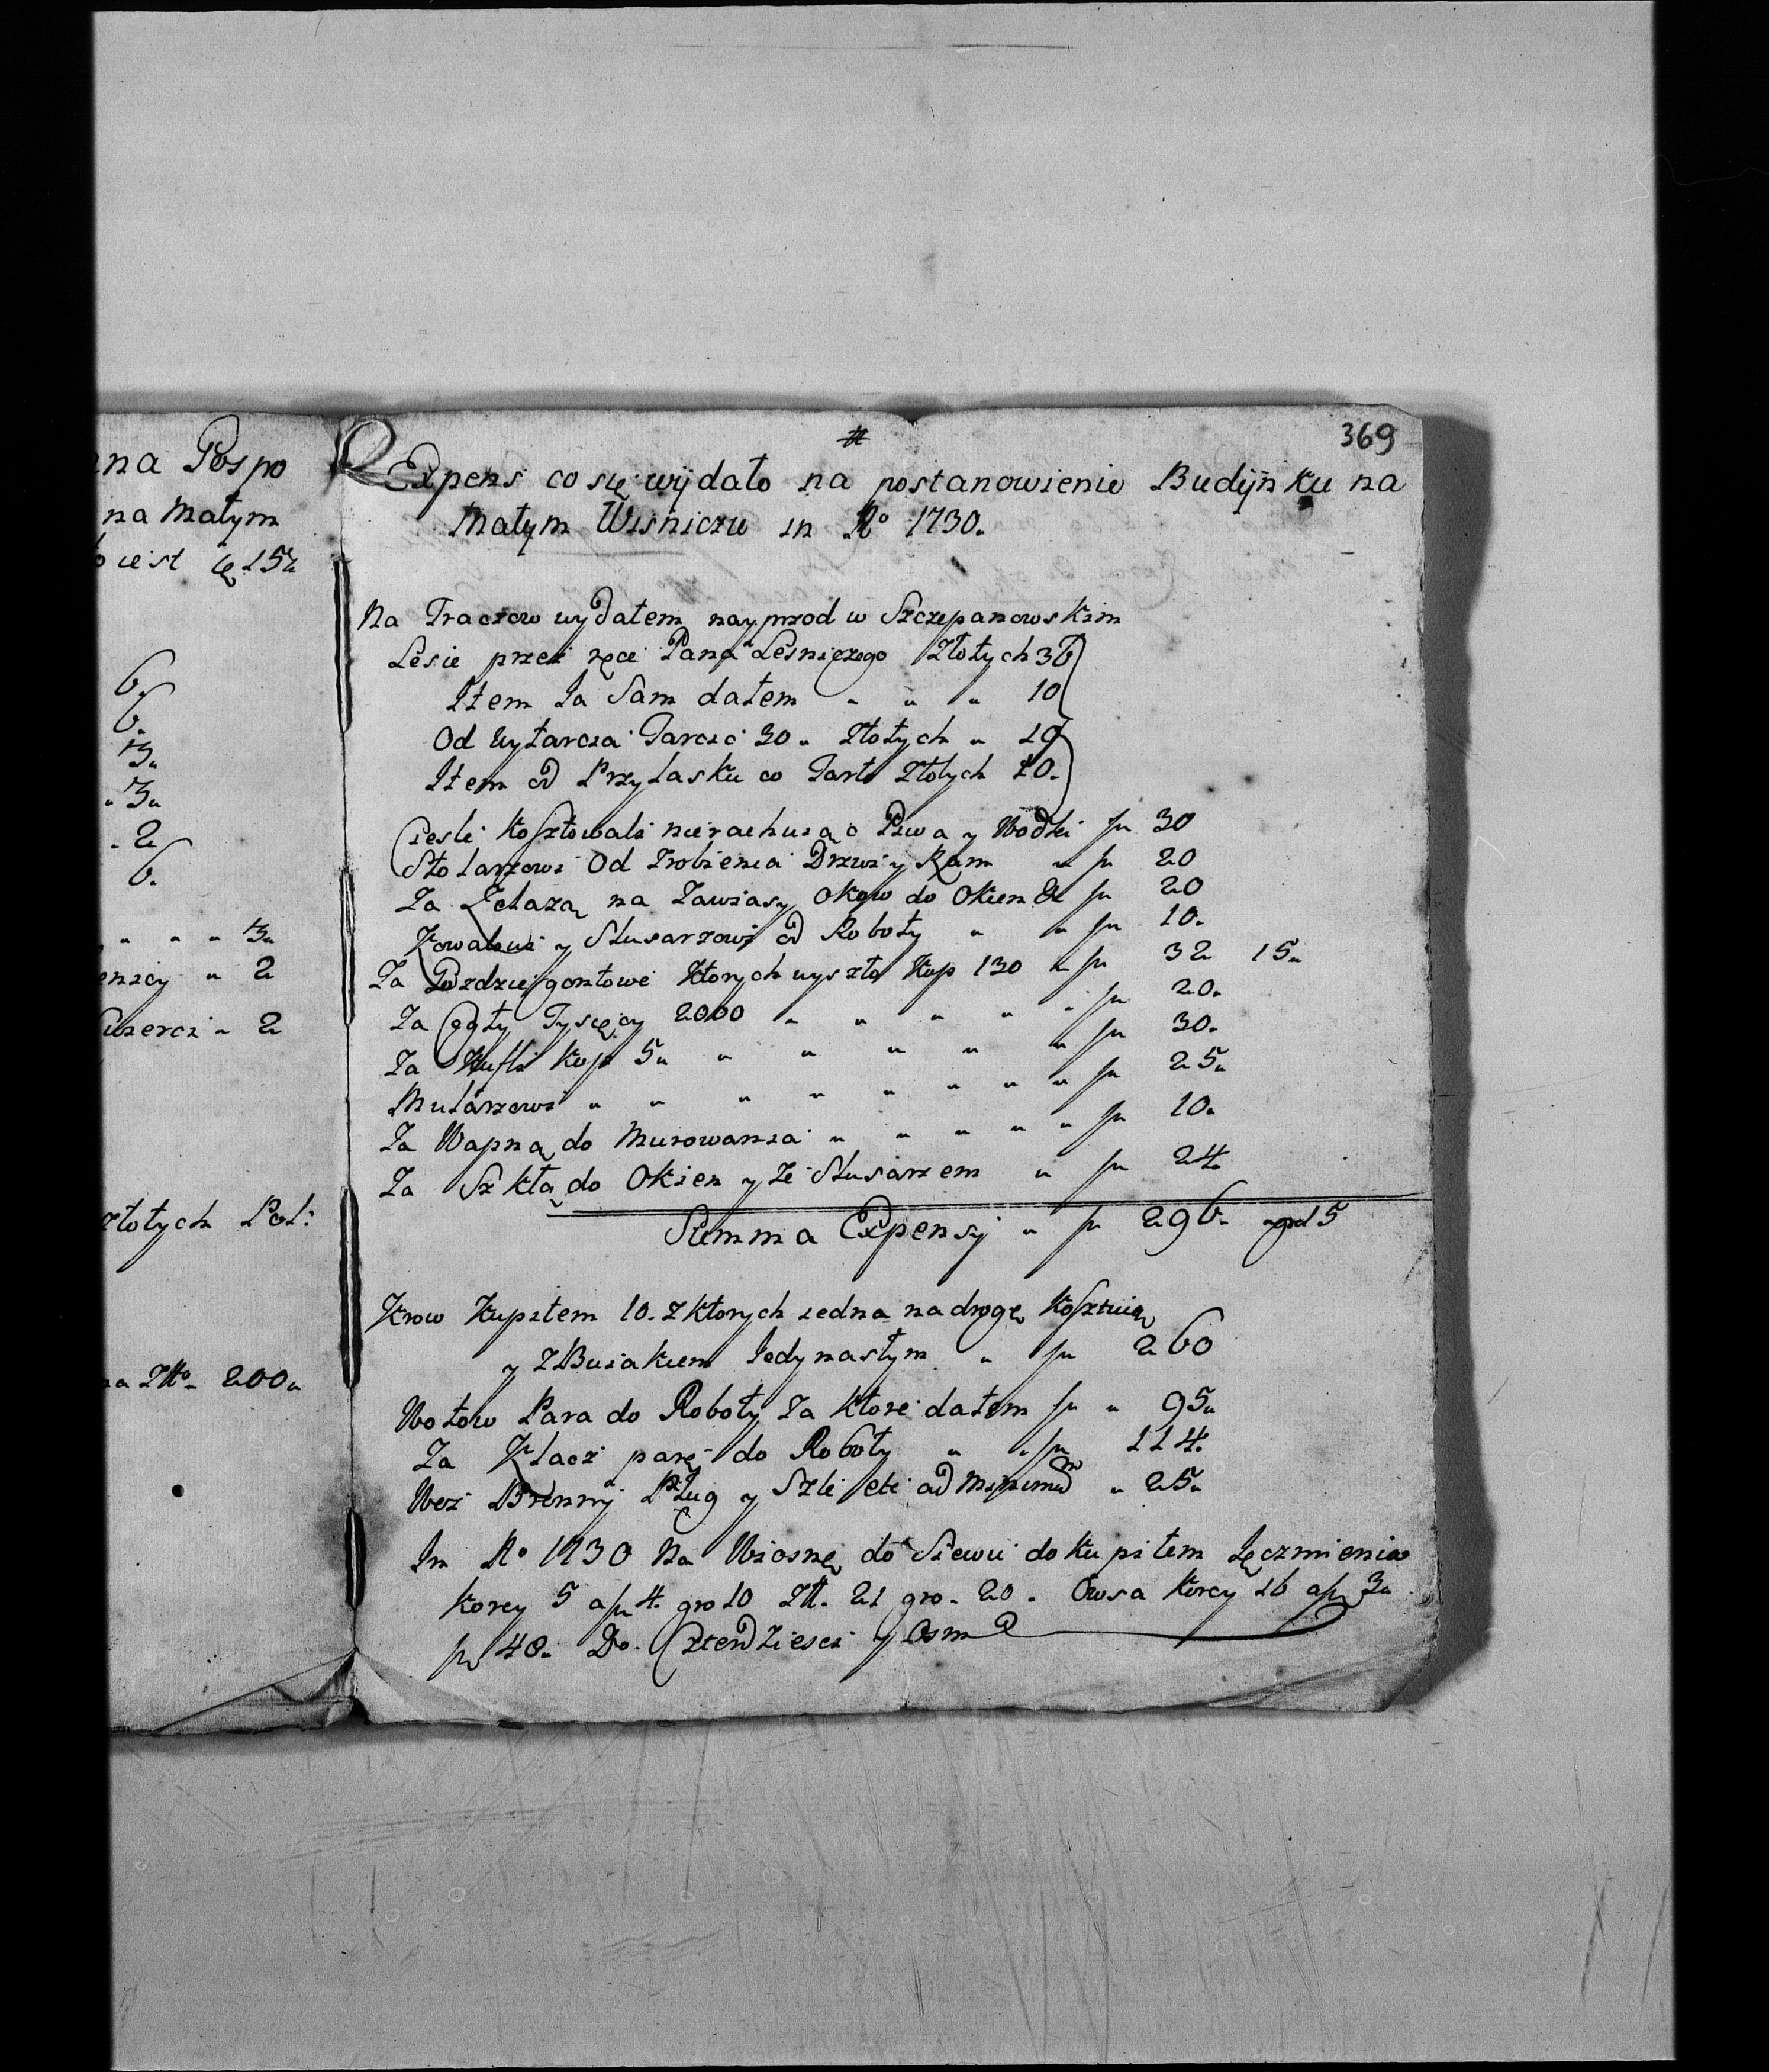 na Pospo
na Małym
iest ię 15
6.
6.
3.
3.
2
6.
3.
2
2
złotych Pol:
na Złło. 200.
369
Expens co się wÿdało na postanowienie Budÿnku na
Małym Wisniczu in Ao 1730.
Na Traczow wydałem nayprzod w Szczepanowskim
Lesie przez ręce Pana Lesniczego Złotych 36
Item Ja Sam dałem 10
Od Wytarcia Tarcic 30. Złotych 19
Item od Przylasku co Tarto Złotych 10.
Ciesli kosztowali nierachuiąc Piwa y Wodki fu 30
Stolarzowi Od Zrobienia Drzwi y Ram fu 20
Za Żelaza na Zawiasy okow do Okien & fu 20
Kowalowi y Slusarzowi od Roboty fu 10.
Za Gozdzie gontowe ktorych wyszło kop 130 fu 32 15.
Za Cegły Tysięcy 2000 fu 20.
Za Kafli Kop 5 fu 30.
Mularzowi fu 25.
Za Wapna do Murowania fu 10.
Za Szkła do Okien y ze Slusarzem fu 24.
Summa Expensÿ fu 296. gro 15
Krow Kupiłem 10. z ktorych iedna na drogę
y z Buiakiem Jedynastym fu 260
Wołow Para do Roboty Za ktore dałem fu 95.
Za Klacz parę do Roboty fu 114.
Woz Pług y 25.
In Ao 1730 Na Wiosnę do Siewu dokupiłem Jęczmienia
Korcy 5 a fu 4. gro 10 Złł. 21 gro. 20. Owsa Korcy 16 a fu 3.
fu 48. Do. Czterdziesci y Osm